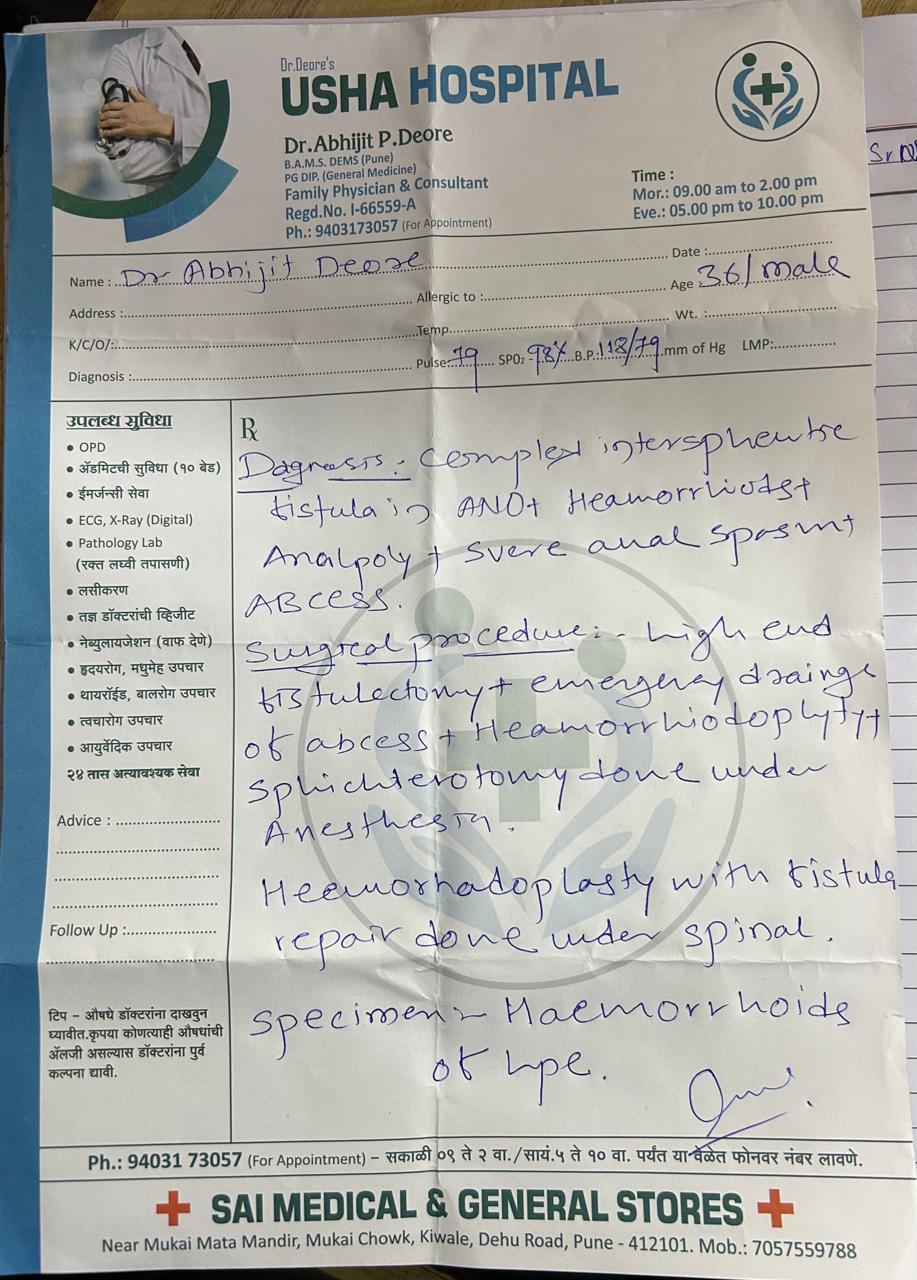 Dr.Deore's
USHA HOSPITAL
Dr.Abhijit P.Deore
B.A.M.S. DEMS (Pune)
PG DIP. (General Medicine)
Family Physician & Consultant
Regd.No. I-66559-A
Ph.: 9403173057 (For Appointment)
Time :
Mor.: 09.00 am to 2.00 pm
Eve.: 05.00 pm to 10.00 pm
Sr
Name : Dr Abhijit Deore Date :
Address : Allergic to : Age 36/male
K/C/O/: Temp. Wt. :
Diagnosis : Pulse: 79 SPO2 - 98% B.P.: 118/79 mm of Hg LMP:
उपलब्ध सुविधा
• OPD
• ॲडमिटची सुविधा (१० बेड)
• ईमर्जन्सी सेवा
• ECG, X-Ray (Digital)
• Pathology Lab
(रक्त लघ्वी तपासणी)
• लसीकरण
• तज्ञ डॉक्टरांची व्हिजीट
• नेब्युलायजेशन (वाफ देणे)
• हृदयरोग, मधुमेह उपचार
• थायरॉईड, बालरोग उपचार
• त्वचारोग उपचार
• आयुर्वेदिक उपचार
२४ तास अत्यावश्यक सेवा
Advice :
Follow Up :
टिप – औषधे डॉक्टरांना दाखवुन
घ्यावीत.कृपया कोणत्याही औषधांची
ॲलर्जी असल्यास डॉक्टरांना पुर्व
कल्पना द्यावी.
Rx
Dagnesis: Complex intersphentre
fistula in ANO+ Heamorrhiods+
Analpoly + svere anal spasm+
ABCESS.
Surgical procedure:- high end
fistulectomy + emergency drainge
of abcess + Heamorrhiodoplyty+
Sphichterotomy done under
Anesthesia.
Heemorhadoplasty with fistula
repair done under spinal.
Specimen - Haemorrhoids
of hpe.
Ph.: 94031 73057 (For Appointment) – सकाळी ०९ ते २ वा./सायं.५ ते १० वा. पर्यंत या वेळेत फोनवर नंबर लावणे.
SAI MEDICAL & GENERAL STORES
Near Mukai Mata Mandir, Mukai Chowk, Kiwale, Dehu Road, Pune - 412101. Mob.: 7057559788